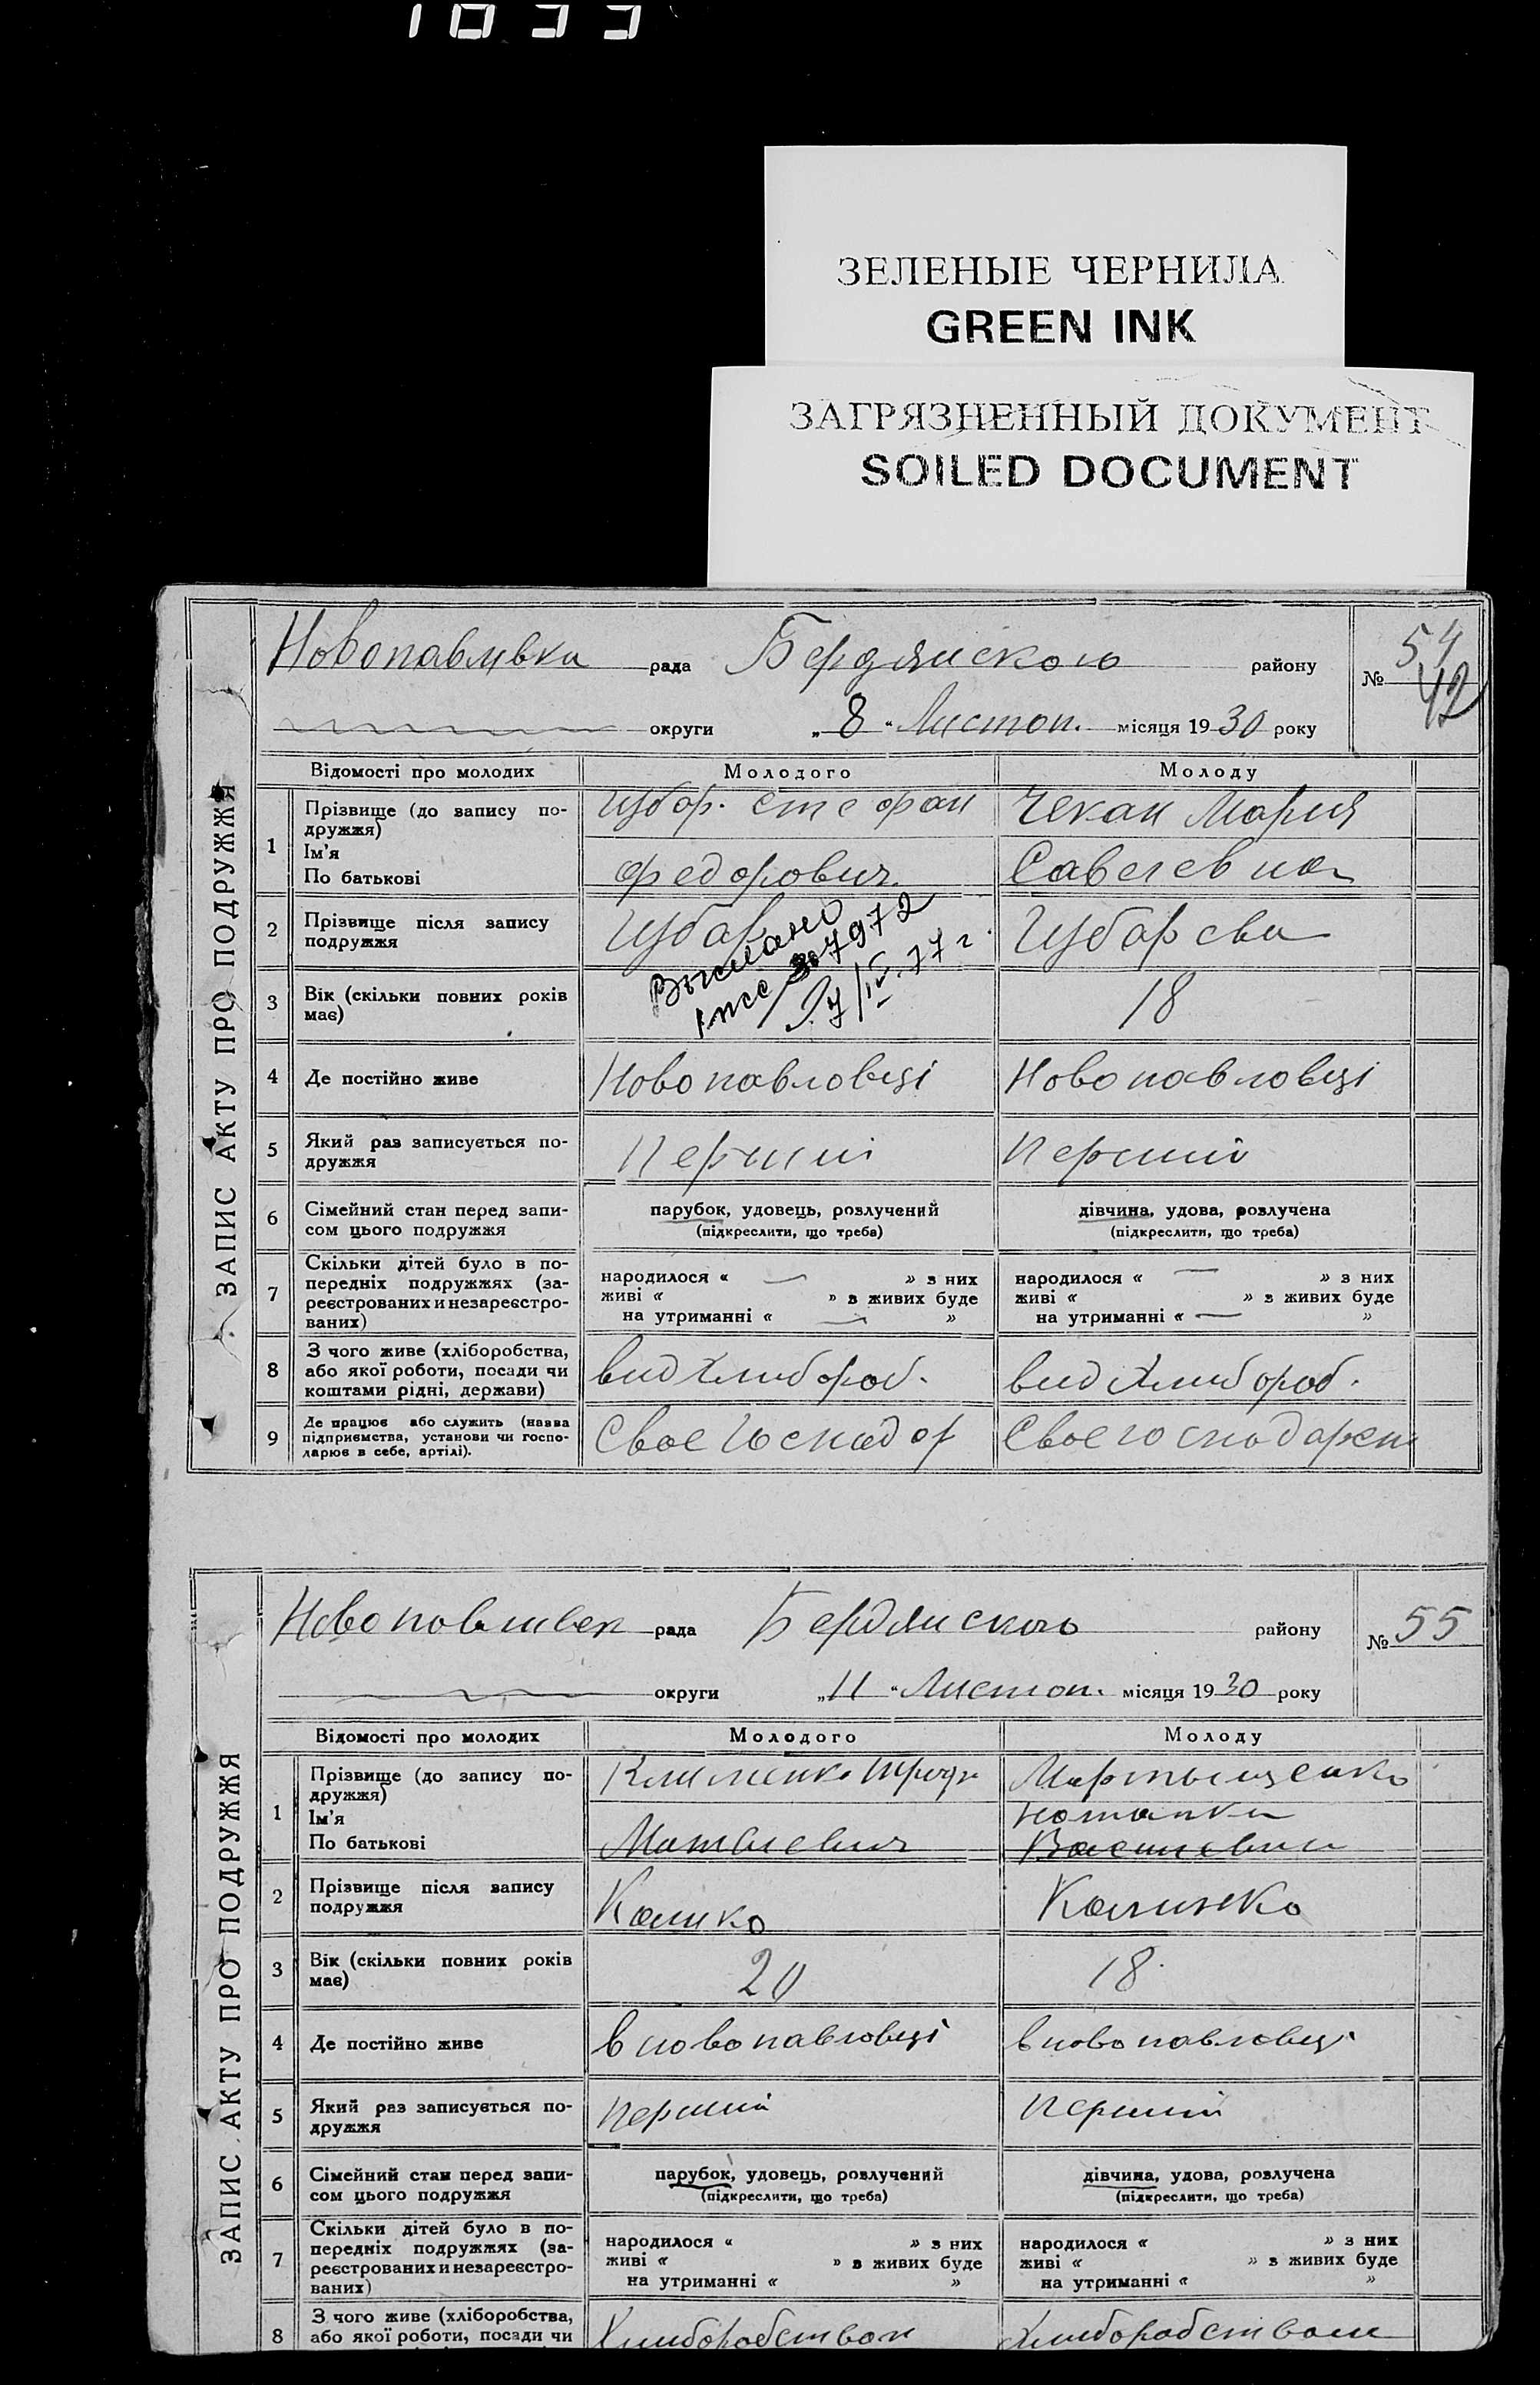 1033
ЗЕЛЕНЫЕ ЧЕРНИЛА
GREEN INK
ЗАГРЯЗНЕННЫЙ ДОКУМЕНТ
SOILED DOCUMENT
ЗАПИС АКТУ ПРО ПОДРУЖЖЯ
Новопавлвка рада Бердянського району № 54
42
округи „8" Листоп. місяця 1930 року
Відомості про молодих Молодого Молоду
1 Прізвище (до запису подружжя) Цубар. Стефан Чекан Мария
Ім'я
По батькові Федорович Савелевна
2 Прізвище після запису подружжя Цубар Цубарева
Выслано
307972
/IV.77 г.
3 Вік (скільки повних років має) 18
4 Де постійно живе Новопавловці Новопавловці
5 Який раз записується подружжя Перший Перший
6 Сімейний стан перед записом цього подружжя парубок, удовець, розлучений дівчина, удова, розлучена
(підкреслити, що треба) (підкреслити, що треба)
7 Скільки дітей було в попередніх подружжях (зареєстрованих и незареєстрованих) народилося « » з них народилося « » з них
живі « » з живих буде живі « » з живих буде
на утриманні « » на утриманні « »
8 З чого живе (хліборобства, або якої роботи, посади чи коштами рідні, держави) вид Хлибороб. вид Хлибороб.
9 Де працює або служить (назва підприємства, установи чи господарює в себе, артілі). Свое Господар Свое господарст
ЗАПИС АКТУ ПРО ПОДРУЖЖЯ
рада Бердянского району № 55
округи „11" Листоп. місяця 1930 року
Відомості про молодих Молодого Молоду
1 Прізвище (до запису подружжя) Мартыщенко
Ім'я
По батькові Матвиевич Василевна
2 Прізвище після запису подружжя
3 Вік (скільки повних років має) 20 18
4 Де постійно живе в новопавловці в новопавловці
5 Який раз записується подружжя перший перший
6 Сімейний стан перед записом цього подружжя парубок, удовець, розлучений дівчина, удова, розлучена
(підкреслити, що треба) (підкреслити, що треба)
7 Скільки дітей було в попередніх подружжях (зареєстрованих и незареєстрованих) народилося « » з них народилося « » з них
живі « » з живих буде живі « » з живих буде
на утриманні « » на утриманні « »
8 З чого живе (хліборобства, або якої роботи, посади чи Хлиборобством Хлиборобством